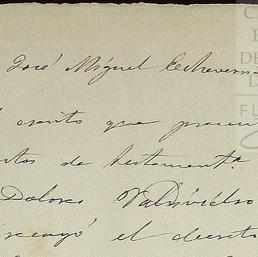 José Miguel Echever
escrito que presen
tos de testament.ª
Dolores Valdivielso
recayó el decreto